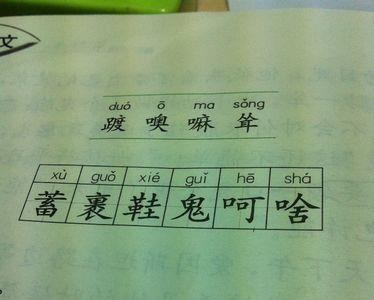 文
duó ō ma sǒng
踱 噢 嘛 耸
xù guǒ xié guǐ hē shá
蓄 裹 鞋 鬼 呵 啥